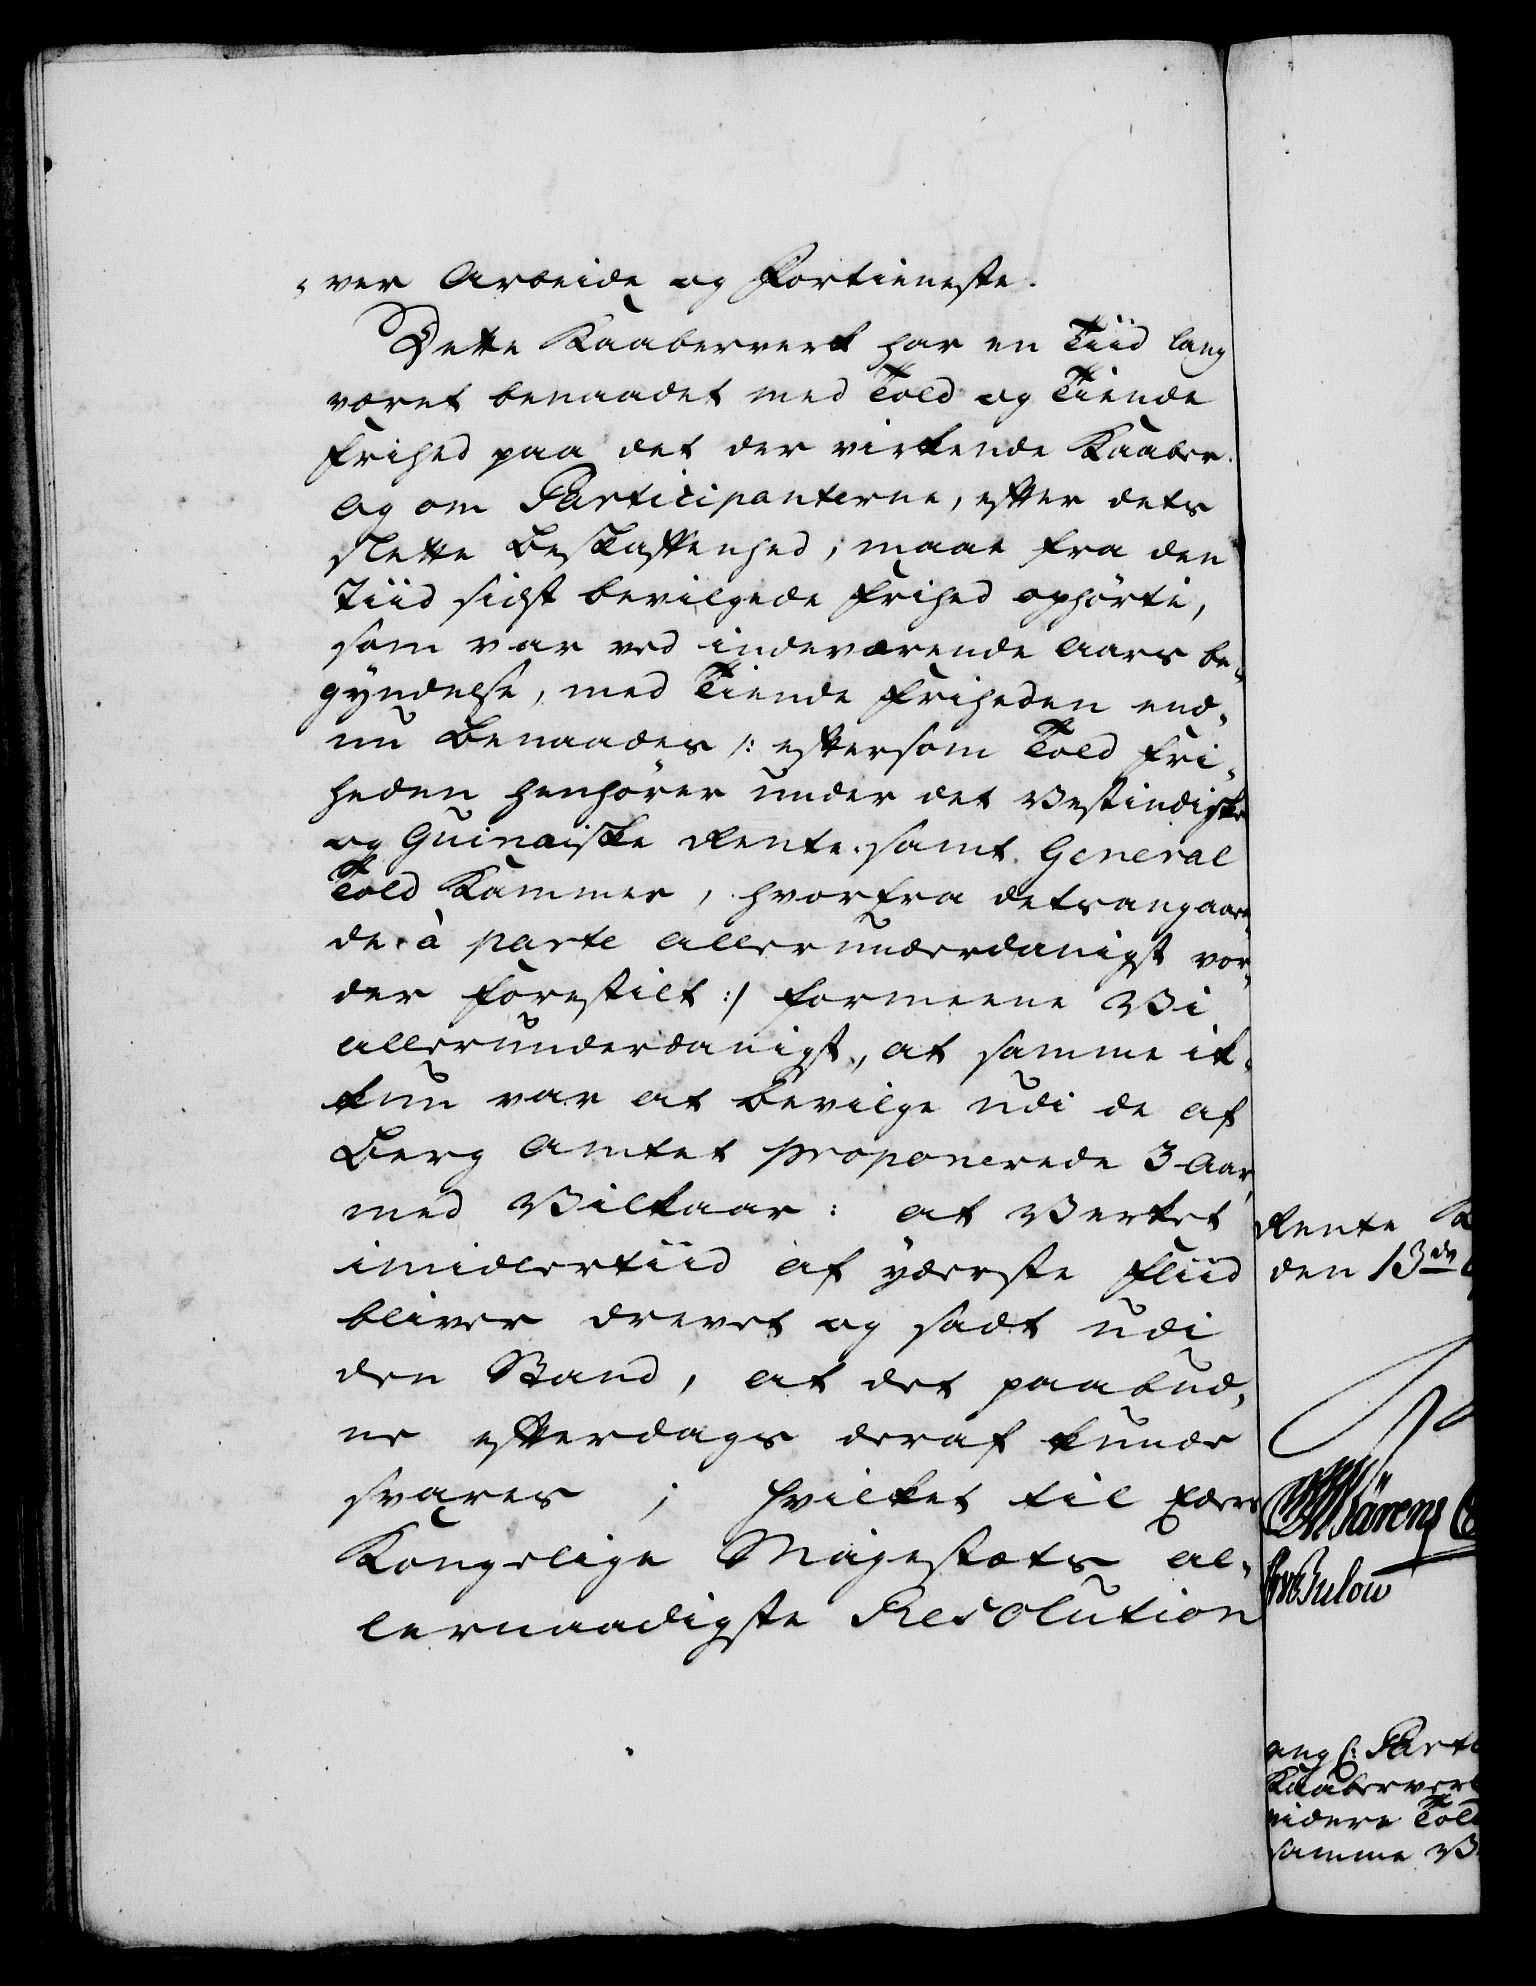 ver Arbeide og Fortieneste.
Dette Kaaberverk har en Tiid lang
været benaadet med Told og Tiende
Frihed paa det der virkende Kaaber.
Og om Participanterne, efter dets
slette Beskaffenhed, maae fra den
Tiid sidst bevilgede Frihed ophørte,
som var ved indeværende Aars be-
gyndelse, med Tiende Friheden end-
nu Benaades /: eftersom Told Fri-
heden henhører under det Vestindiske
og Guinaiske Rente- samt General
Told Kammer, hvorfra detsangaaen-
de à parte allerunderdanigst vor-
der forestilt :/ formeene Vi
allerunderdanigst, at samme ik-
kun var at bevilge udi de af
Berg Amtet proponerede 3 Aar,
med Vilkaar: at Verket
imidlertiid af yderste Fliid
bliver drevet og sadt udi
den Stand, at det paabud-
ne efterdags deraf kunde
svares; hvilket til Eders
Kongelige Majestæts al-
lernaadigste Resolution
Rente K
den 13de
Bulow
ang: Parti
Kaaberverk
videre Told
samme